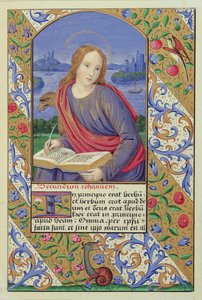 Secundum Iohannem.
In principio erat verbū
et verbum erat apud de
um et deus erat verbū
hoc erat in principio
apud deum. Omnia per ipsū
facta sunt et sine ipso factum est ni